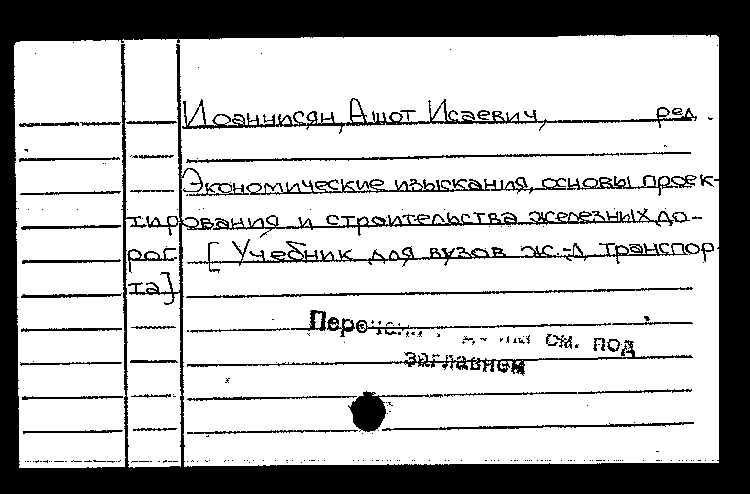 Иоаннисян, Ашот Исаевич, ред.
Экономические изыскания, основы проек-
тирования и строительства железных до-
рог. [Учебник для вузов ж.-д. транспор-
та]
см. под
заглавием